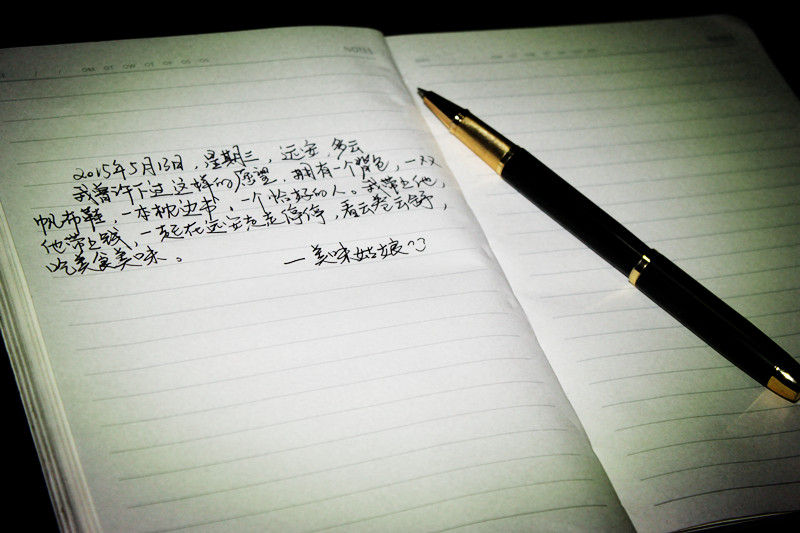 NOTES
2015年5月13日,星期三,远安,多云
我曾许下过这样的愿望,拥有一个背包,一双
帆布鞋,一本枕边书,一个恰好的人。我带上他,
他带上钱,一起在远安走走停停,看云卷云舒,
吃美食美味。
一美味姑娘